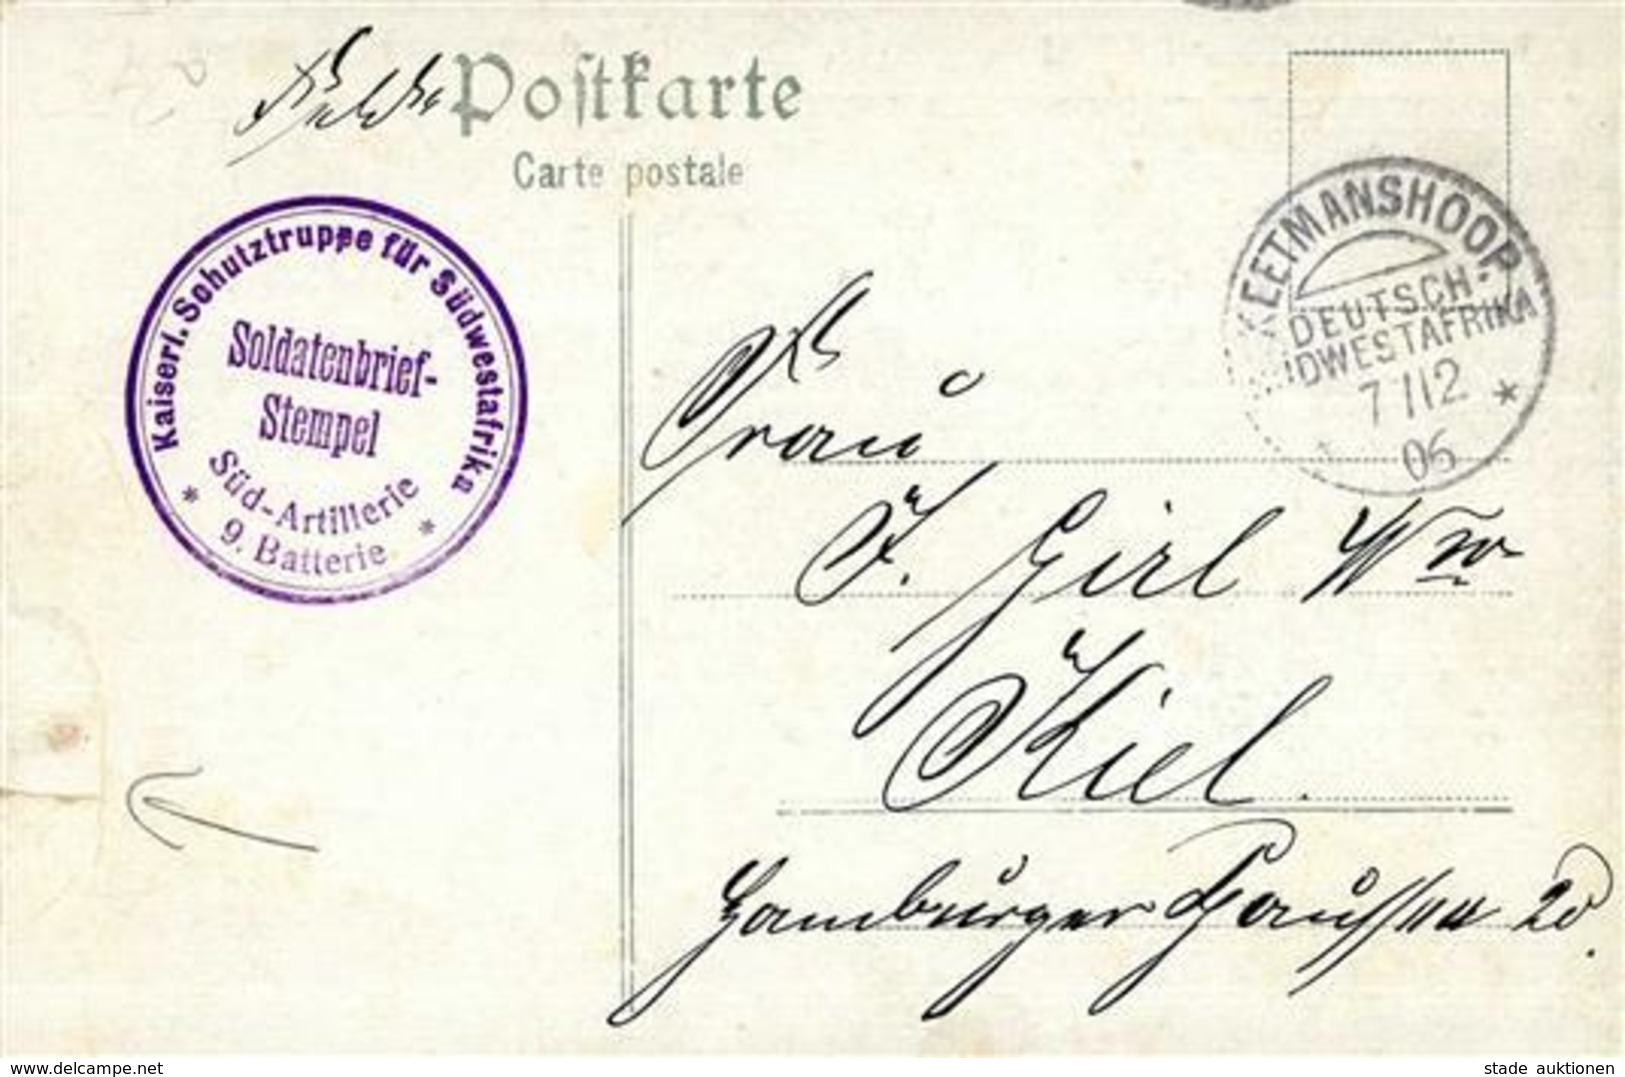 Postkarte
Carte postale
Kaiserl. Schutztruppe für Südwestafrika
Soldatenbrief-
Stempel
Süd-Artillerie
* 9. Batterie *
KEETMANSHOOP.
DEUTSCH-
IDWESTAFRIKA
7/12 *
06
Frau
J. Girl Wwe
Kiel.
Hamburger 20.
www.delcampe.net
stade auktionen